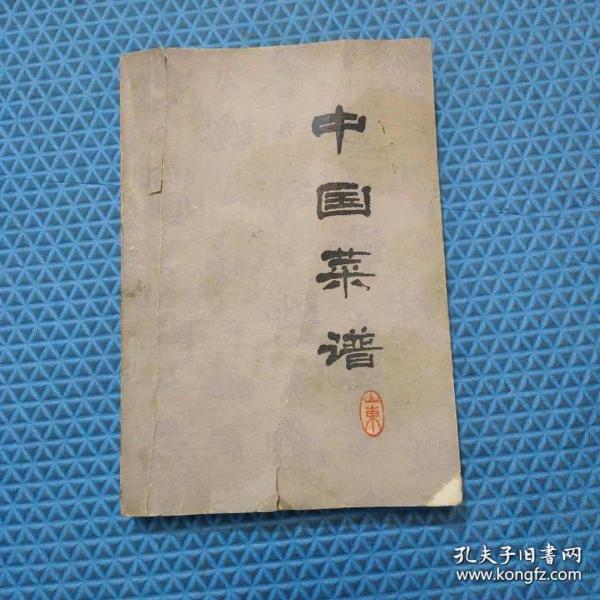 中国菜谱
山東
孔夫子旧書网
www.kongfz.com